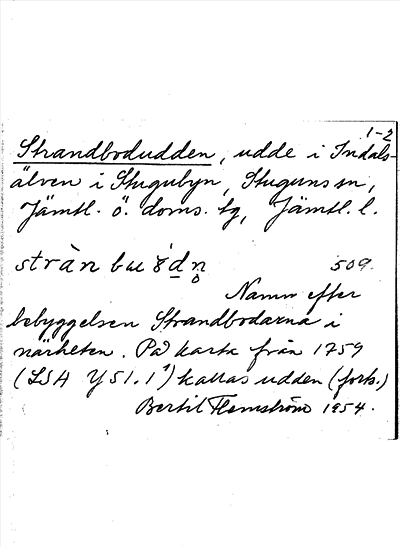 1-2
Strandbodudden, udde i Indals-
älven i Stugubyn, Stuguns sn,
Jämtl. ö. doms. tg, Jämtl. l.
509.
Namn efter
bebyggelsen Strandbodarna i
närheten. På karta från 1759
(LSA Y51.1¹) kallas udden (forts.)
Bertil Flemström 1954.